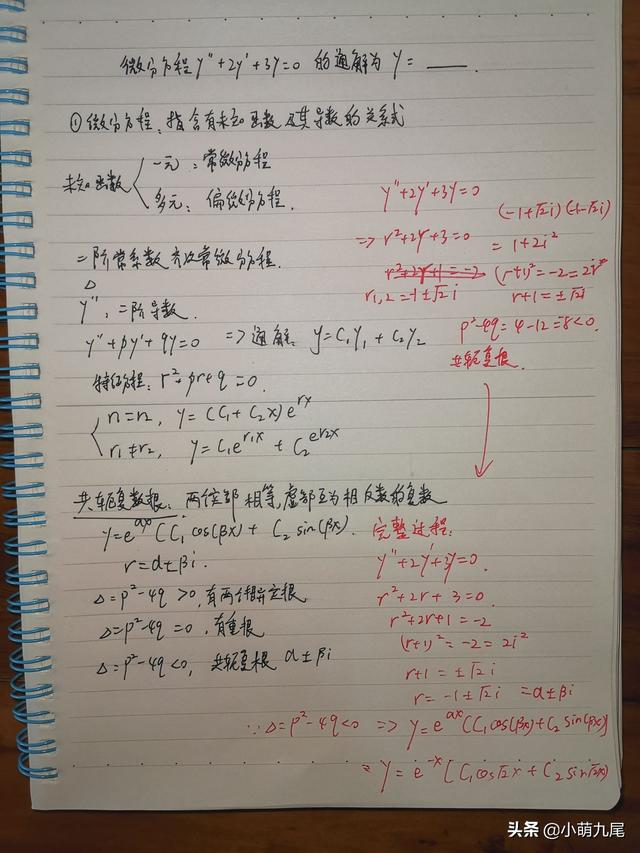 微分方程 y''+2y'+3y=0 的通解为 y= ____.
①微分方程：指含有未知函数及其导数的关系式
未知函数 { 一元：常微分方程
多元：偏微分方程.
二阶常系数齐次常微分方程.
y''：二阶导数.
y''+py'+qy=0 => 通解：y=C₁y₁+C₂y₂
特征方程：r²+pr+q=0.
{ r₁=r₂, y=(C₁+C₂x)e^{rx}
r₁≠r₂, y=C₁e^{r₁x}+C₂^{er₂x}
共轭复数根：两个实部相等,虚部互为相反数的复数
y=e^{αx}(C₁cos(βx)+C₂sin(βx).
r=α±βi.
Δ=p²-4q>0,有两个相异实根
Δ=p²-4q=0,有重根
Δ=p²-4q<0, 共轭复根 α±βi
y''+2y'+3y=0
=> r²+2r+3=0
r²+2r+1=-2
r₁,₂=-1±√2i
(-1+√2i)(-1-√2i)
=1+2i²
(r+1)²=-2=2i²
r+1=±√2i
p²-4q=4-12=-8<0.
共轭复根.
完整过程：
y''+2y'+3y=0.
r²+2r+3=0.
r²+2r+1=-2
(r+1)²=-2=2i²
r+1=±√2i
r=-1±√2i =α±βi
∵Δ=p²-4q<0 => y=e^{αx}(C₁cos(βx)+C₂sin(βx)]
y=e^{-x}[C₁cos√2x+C₂sin√2x)
头条 @小萌九尾